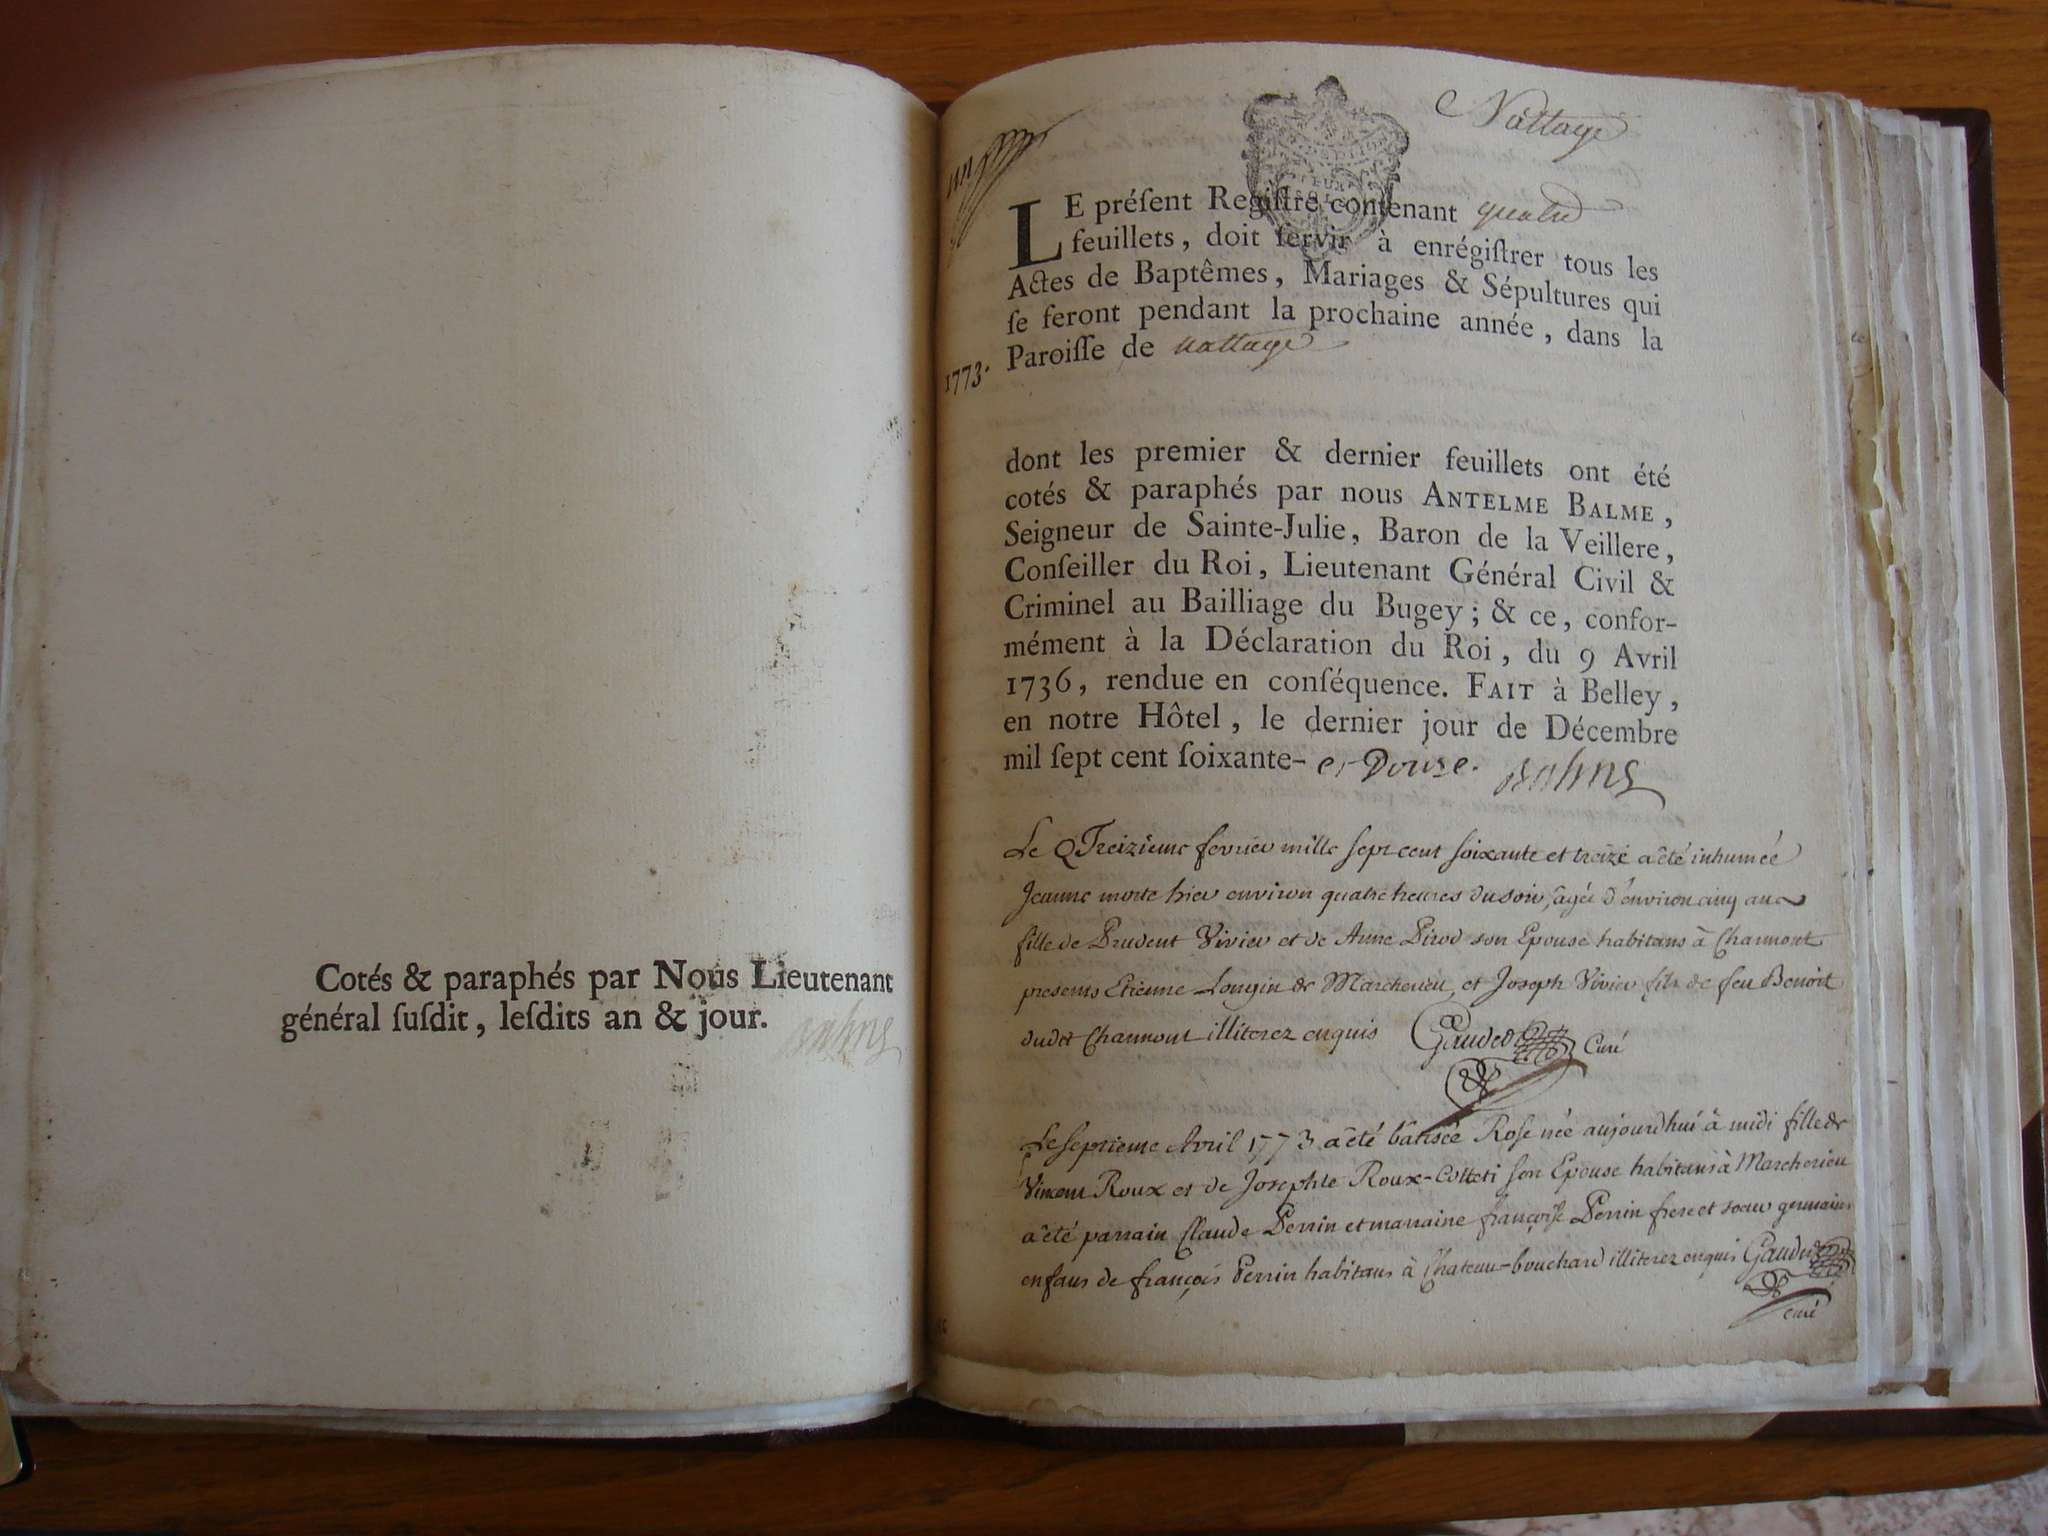 Cotés & paraphés par Nous Lieutenant
général ſuſdit, leſdits an & jour.
Nattage
LE préſent Regiſtre contenant quatre
feuillets, doit ſervir à enrégiſtrer tous les
Actes de Baptêmes, Mariages & Sépultures qui
ſe feront pendant la prochaine année, dans la
Paroiſſe de nattage
1773.
dont les premier & dernier feuillets ont été
cotés & paraphés par nous ANTELME BALME,
Seigneur de Sainte-Julie, Baron de la Veillere,
Conſeiller du Roi, Lieutenant Général Civil &
Criminel au Bailliage du Bugey; & ce, confor-
mément à la Déclaration du Roi, du 9 Avril
1736, rendue en conſéquence. FAIT à Belley,
en notre Hôtel, le dernier jour de Décembre
mil ſept cent ſoixante- et Douze. Balme
Le Treizieme fevrier mille sept cent soixante et treize a êté inhumée
Jeanne morte hier environ quatre heures du soir, âgée d'environ cinq ans
fille de Prudent Vivier et de Anne Pirod son Epouse habitans à Charmont
presents Etienne Longin de Marcherieu, et Joseph Vivier fils de feu Benoit
dudit Charmont illiterez enquis Gaudet Curé
Le septieme Avril 1773 a êté batisée Rose née aujourdhui à midi fille de
Vincent Roux et de Josephte Roux-Colleti son Epouse habitans à Marcherieu
a êté parrain Claude Perrin et marraine françoise Perrin frere et soeur germains
enfans de françois Perrin habitans à Chateau-bouchard illiterez enquis Gaudet
curé